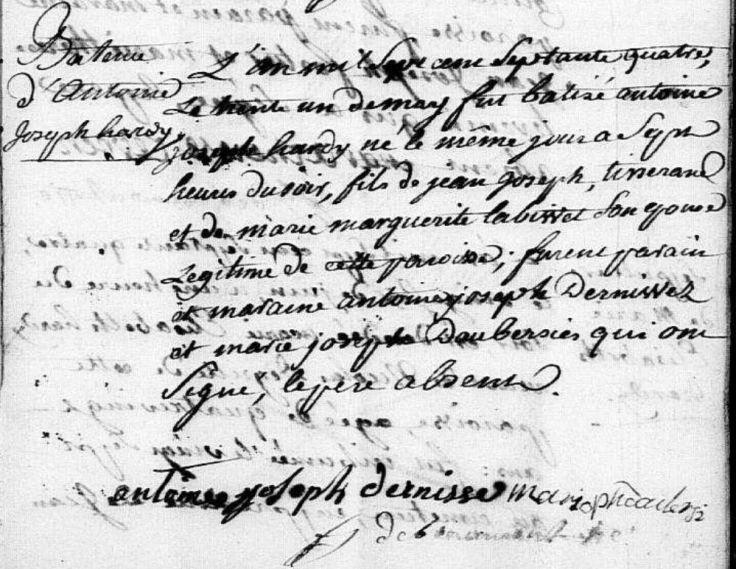 Bateme
d'Antoine
Joseph hardy
L'an mil sept cent septante quatre,
Le trente un demay fut batisé antoine
joseph hardy né le même jour a sept
heures du soir, fils de jean joseph, tisserand
et de marie marguerite labisset son epouse
Legitime de cette paroisse; furent parain
et maraine antoine joseph Dernissez
et marie joseph Daubersies qui ont
Signe, le pere absent.
antoine joseph dernisse